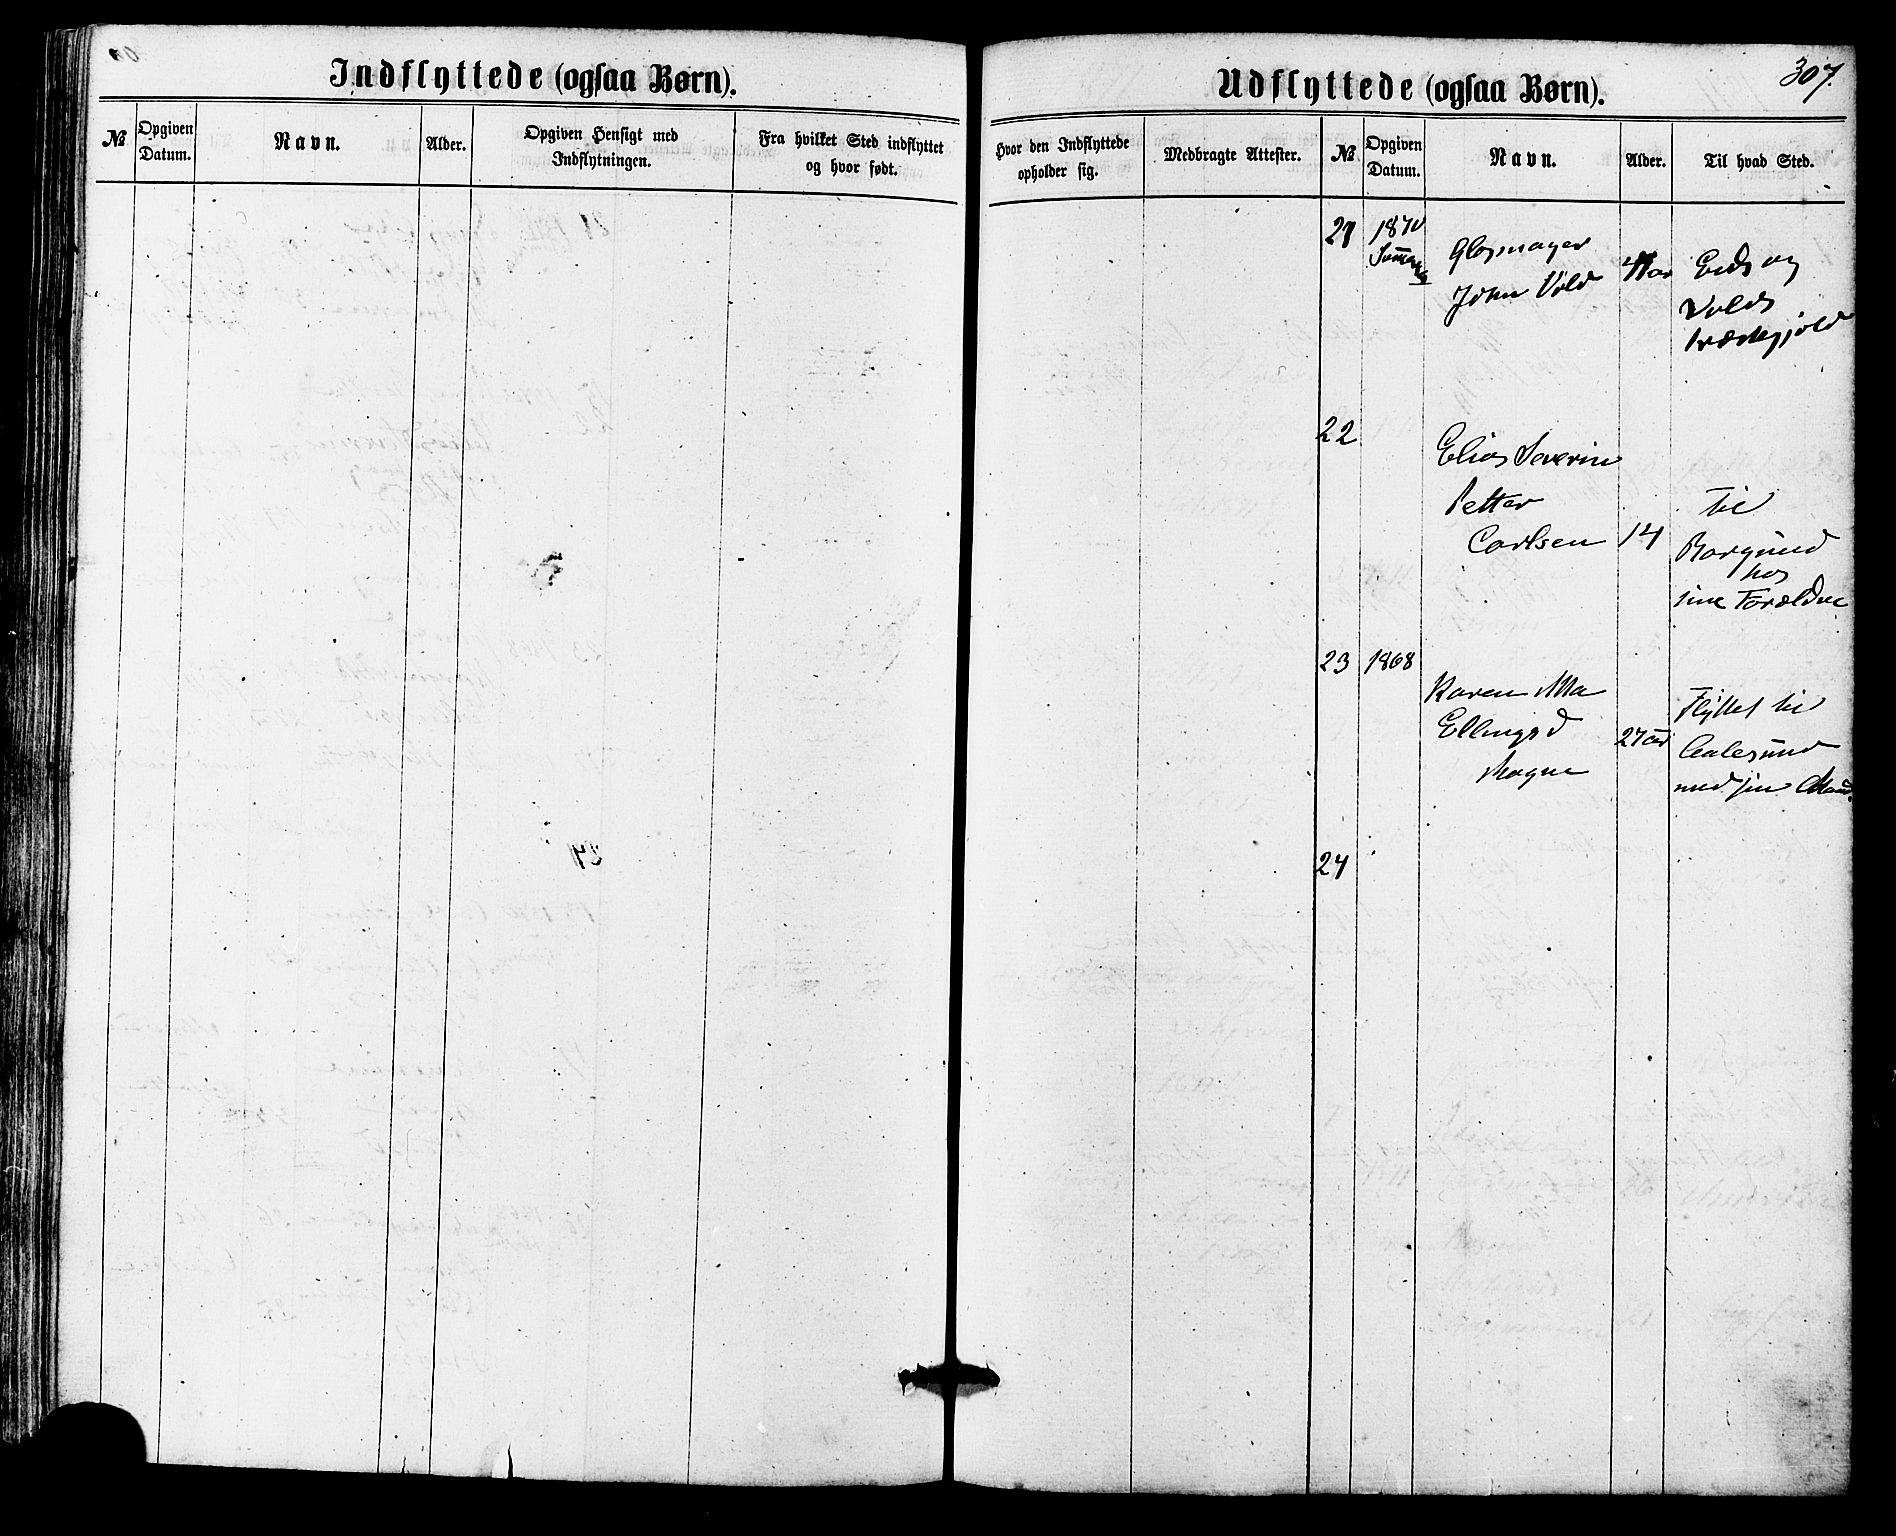 Indflyttede (ogsaa Børn).
№
Opgiven
Datum.
Navn.
Alder.
Opgiven Hensigt med
Indflytningen.
Fra hvilket Sted indflyttet
og hvor født.
Udflyttede (ogsaa Børn).
307.
Hvor den Indflyttede
opholder sig.
Medbragte Attester.
№
Opgiven
Datum.
Navn.
Alder.
Til hvad Sted.
21 1870
Glasmager
John Vold
Eids og
Volds
22
Elias Severin
Petter
Carlsen 14
til
Borgund
hos
sine Forældre
23 1868
Karen Ma
Ellingsd
Magne
27 aar
Flyttet til
Aalesund
med sin Mand.
24